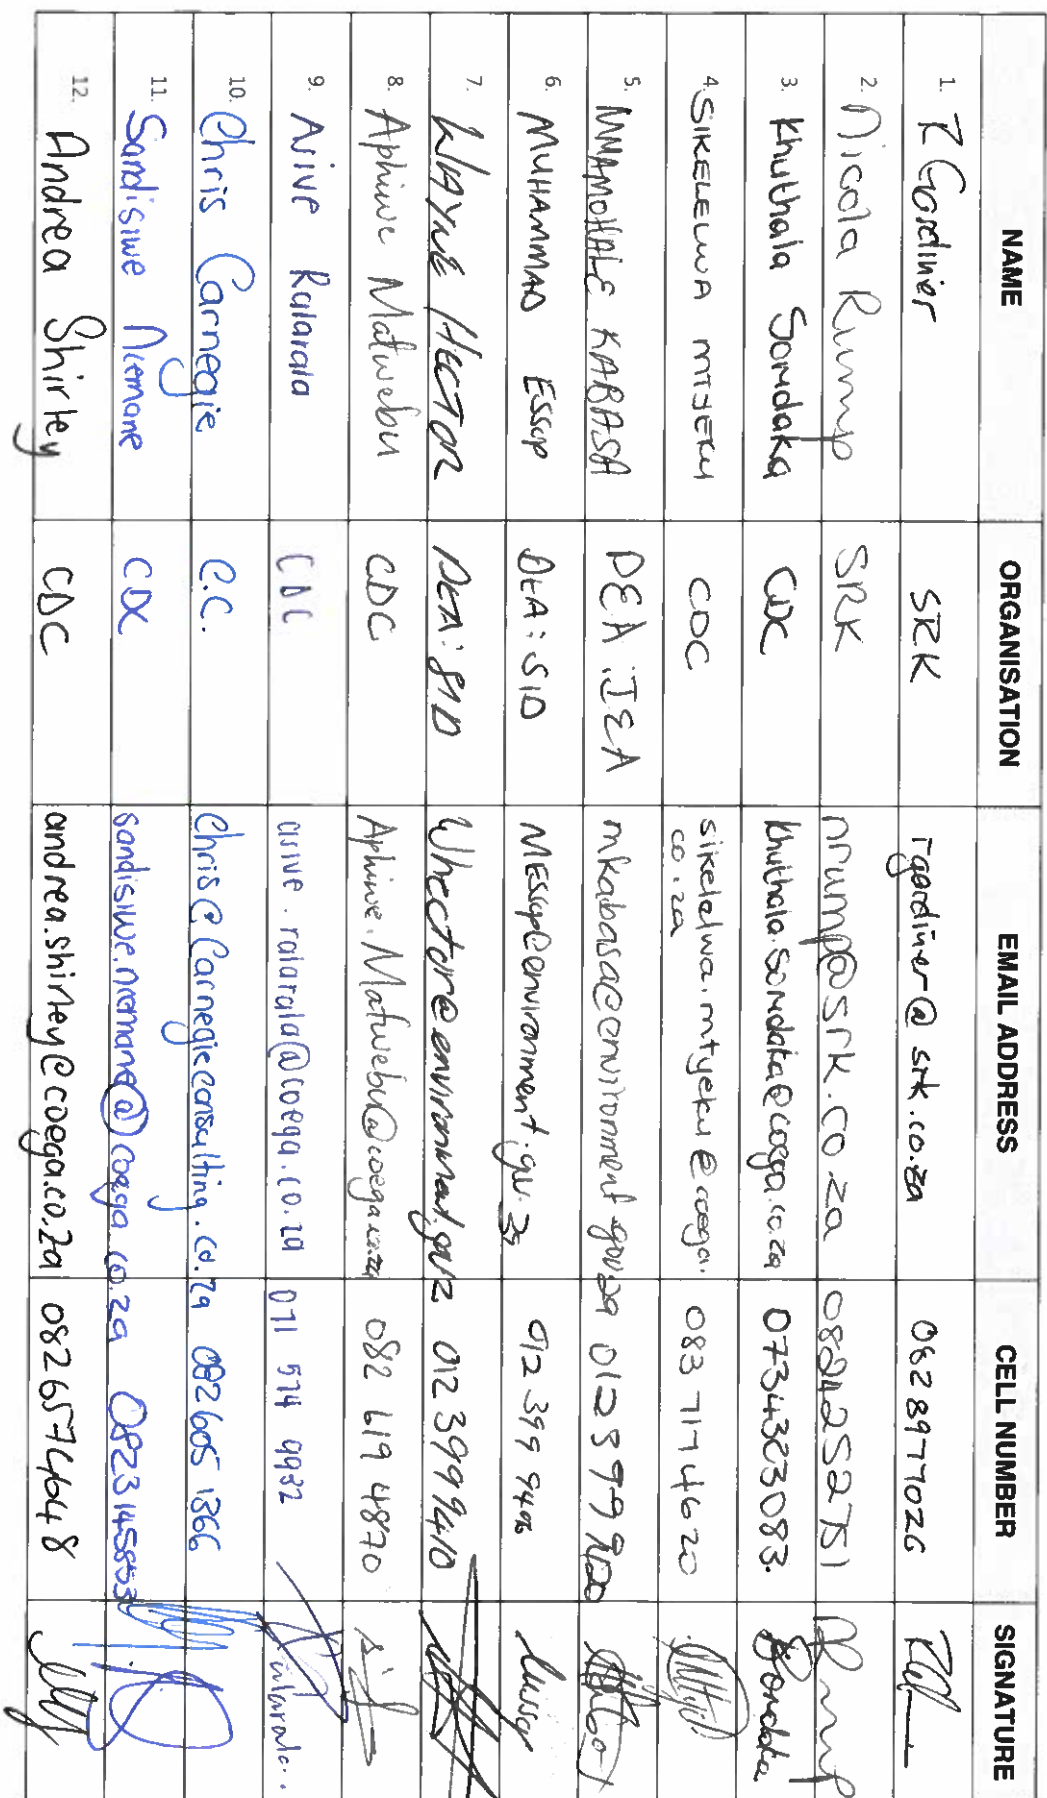 NAME ORGANISATION EMAIL ADDRESS CELL NUMBER SIGNATURE
1. R Gardiner SRK rgardiner@srk.co.za 0828977026
2. Nicola Rump SRK nrump@srk.co.za 0824252751
3. Khuthala Somdaka CDC khuthala.somdaka@coega.co.za 0734323083.
4. SIKELELWA MTJEKU CDC sikelelwa.mtyeku@coega.
co.za 083 717 4620
5. MMAMOHALE KABASA DEA:IEA mkabasa@environment.gov.za
6. MUHAMMAD ESSOP DEA:SID MEssop@environment.gov.za 012 399 9406
7. WAYNE HECTOR DEA:SID Whector@environment.gov.z 012 3999410
8. Aphiwe Matwebu CDC Aphiwe.Matwebu@coega.co.za 082 619 4870
9. Avive Ralarala CDC avive.ralarala@coega.co.za 071 574 9932
10. Chris Carnegie C.C. Chris@Carnegieconsulting.co.za 082605 1366
11. Sandisiwe Ncemane CDC sandisiwe.ncemane@coega.co.za 0823145853
12. Andrea Shirley CDC andrea.shirley@coega.co.za 0826574648